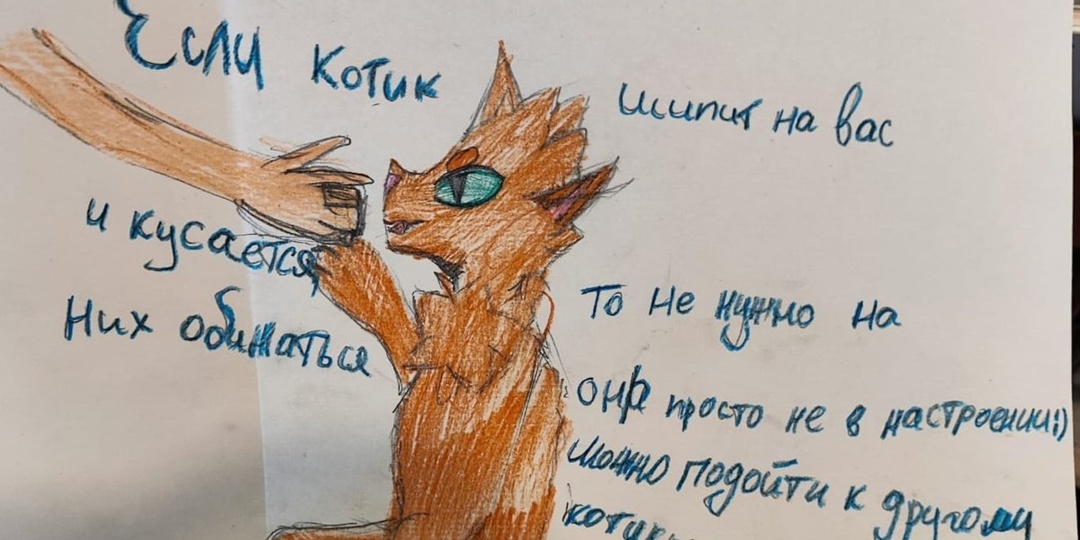 Если котик шипит на вас
и кусается,
То не нужно на
них обижаться
она просто не в настроении:)
Можно подойти к другому